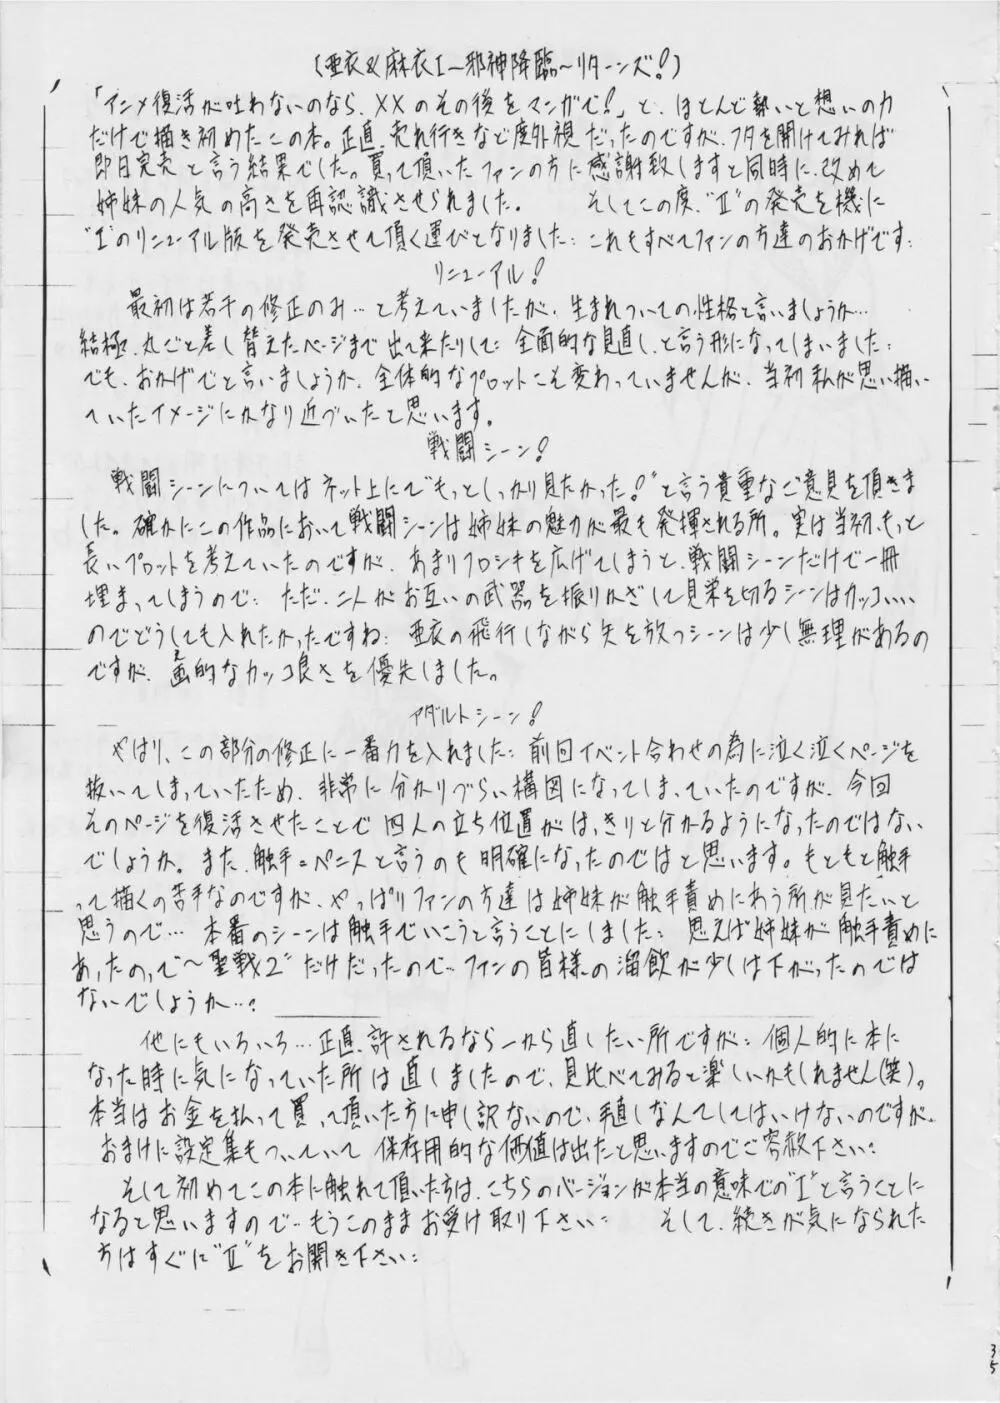 (亜衣&麻衣I～邪神降臨～リターンズ!)
「アニメ復活が叶わないのなら、XXのその後をマンガで!」と、ほとんど勢いと想いの力
だけで描き初めたこの本。正直、売れ行きなど度外視だったのですが、フタを開けてみれば
即日完売と言う結果でした。買って頂いたファンの方に感謝致しますと同時に、改めて
姉妹の人気の高さを再認識させられました。 そしてこの度、"II"の発売を機に
"I"のリニューアル版を発売させて頂く運びとなりました: これもすべてファンの方達のおかげです:
リニューアル!
最初は若干の修正のみ…と考えていましたが、生まれついての性格と言いましょうか…
結極、丸ごと差し替えたページまで出て来たりして: 全面的な見直し、と言う形になってしまいました:
でも、おかげでと言いましょうか、全体的なプロットこそ変わっていませんが、当初私が思い描い
ていたイメージにかなり近づいたと思います。
戦闘シーン!
戦闘シーンについてはネット上にて"もっとしっかり見たかった!"と言う貴重なご意見を頂きま
した。確かにこの作品において戦闘シーンは姉妹の魅力が最も発揮される所。実は当初、もっと
長いプロットを考えていたのですが、あまりフロシキを広げてしまうと、戦闘シーンだけで一冊
埋まってしまうので: ただ、二人がお互いの武器を振りかざして見栄を切るシーンはカッコいい
のでどうしても入れたかったですね: 亜衣の飛行しながら矢を放つシーンは少し無理があるの
ですが、画的なカッコ良さを優先しました。
アダルトシーン!
やはり、この部分の修正に一番力を入れました: 前回イベント合わせの為に泣く泣くページを
抜いてしまっていたため、非常に分かりづらい構図になってしまっていたのですが、今回
そのページを復活させたことで四人の立ち位置がはっきりと分かるようになったのではない
でしょうか。また、触手=ペニスと言うのも明確になったのではと思います。もともと触手
って描くの苦手なのですが、やっぱりファンの方達は姉妹が触手責めにあう所が見たいと
思うので… 本番のシーンは触手でいこうと言うことにしました: 思えば姉妹が触手責めに
あったのって"～聖戦2"だけだったので…ファンの皆様の溜飲が少しは下がったのでは
ないでしょうか…?
他にもいろいろ…正直、許されるなら一から直したい所ですが: 個人的に本に
なった時に気になっていた所は直しましたので、見比べてみると楽しいかもしれません(笑)。
本当はお金を払って買って頂いた方に申し訳ないので、手直しなんてしてはいけないのですが、
おまけに設定集もついていて保存用的な価値は出たと思いますのでご容赦下さい:
そして初めてこの本に触れて頂いた方は、こちらのバージョンが本当の意味での"I"と言うことに
なると思いますので…もうこのままお受け取り下さい: そして、続きが気になられた
方はすぐに"II"をお開き下さい:
35